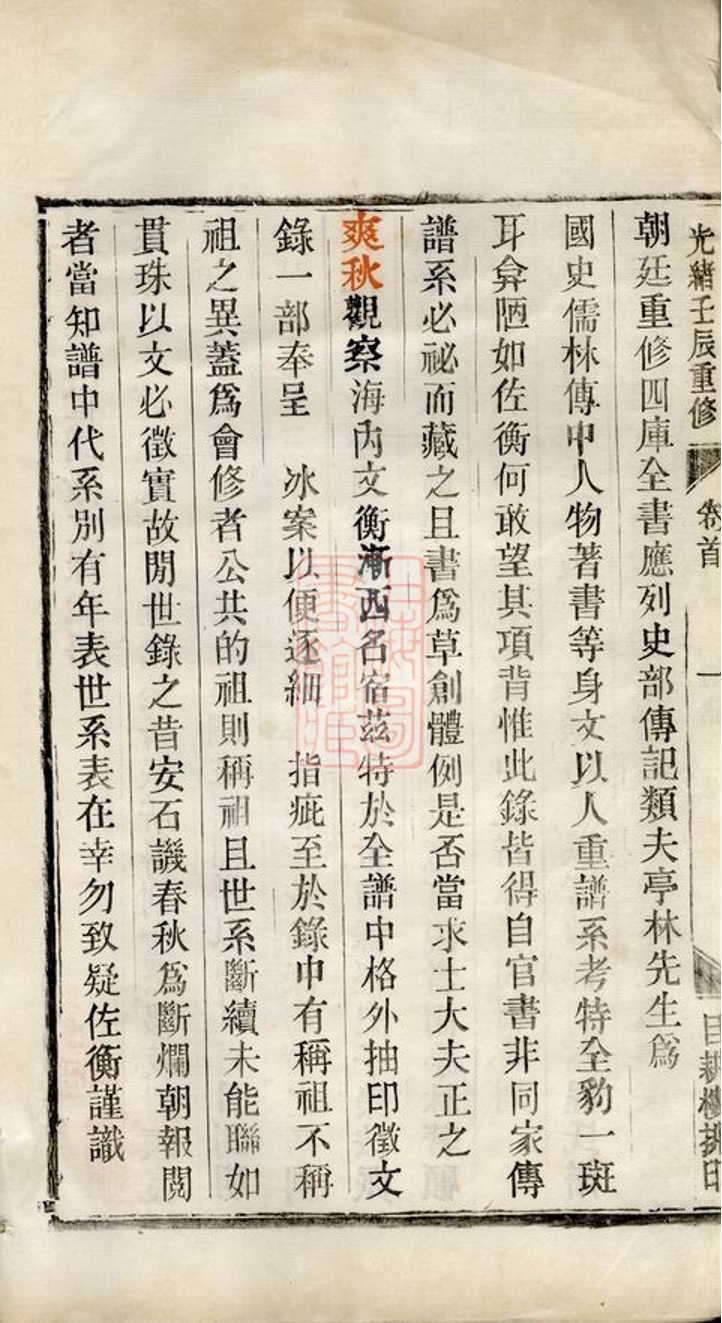 光緒壬辰重修 卷首 一
朝廷重修四庫全書應列史部傳記類夫亭林先生爲
國史儒林傳中人物著書等身文以人重譜系考特全豹一斑
耳弇陋如佐衡何敢望其項背惟此錄皆得自官書非同家傳
譜系必祕而藏之且書爲草創體例是否當求士大夫正之
爽秋觀察海內文衡漸西名宿茲特於全譜中格外抽印徵文
錄一部奉呈 冰案以便逐細 指疵至於錄中有稱祖不稱
祖之異蓋爲會修者公共的祖則稱祖且世系斷續未能聯如
貫珠以文必徵實故閒世錄之昔安石譏春秋爲斷爛朝報閱
者當知譜中代系別有年表世系表在幸勿致疑佐衡謹識